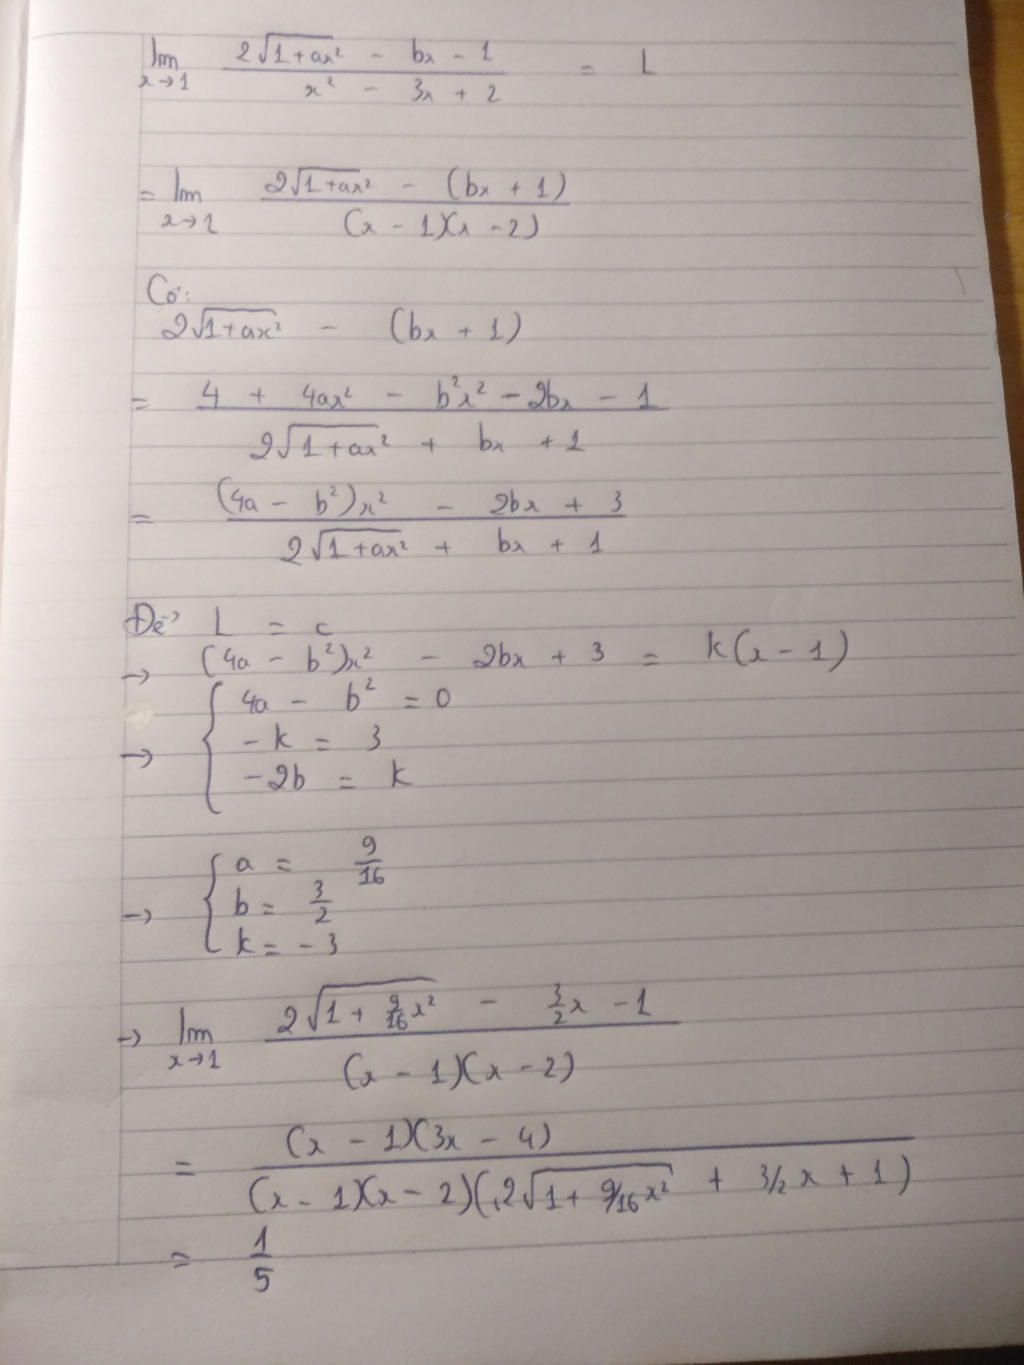 lim x→1 (2√(1+ax²) - bx - 1)/(x² - 3x + 2) = L
= lim x→1 (2√(1+ax²) - (bx + 1))/((x - 1)(x - 2))
Có:
2√(1+ax²) - (bx + 1)
= (4 + 4ax² - b²x² - 2bx - 1)/(2√(1+ax²) + bx + 1)
= ((4a - b²)x² - 2bx + 3)/(2√(1+ax²) + bx + 1)
Để L = c
→ (4a - b²)x² - 2bx + 3 = k(x - 1)
→ { 4a - b² = 0
- k = 3
- 2b = k
→ { a = 9/16
b = 3/2
k = - 3
→ lim x→1 (2√(1 + 9/16 x²) - 3/2 x - 1)/((x - 1)(x - 2))
= ((x - 1)(3x - 4))/((x - 1)(x - 2)(2√(1 + 9/16 x²) + 3/2 x + 1))
= 1/5